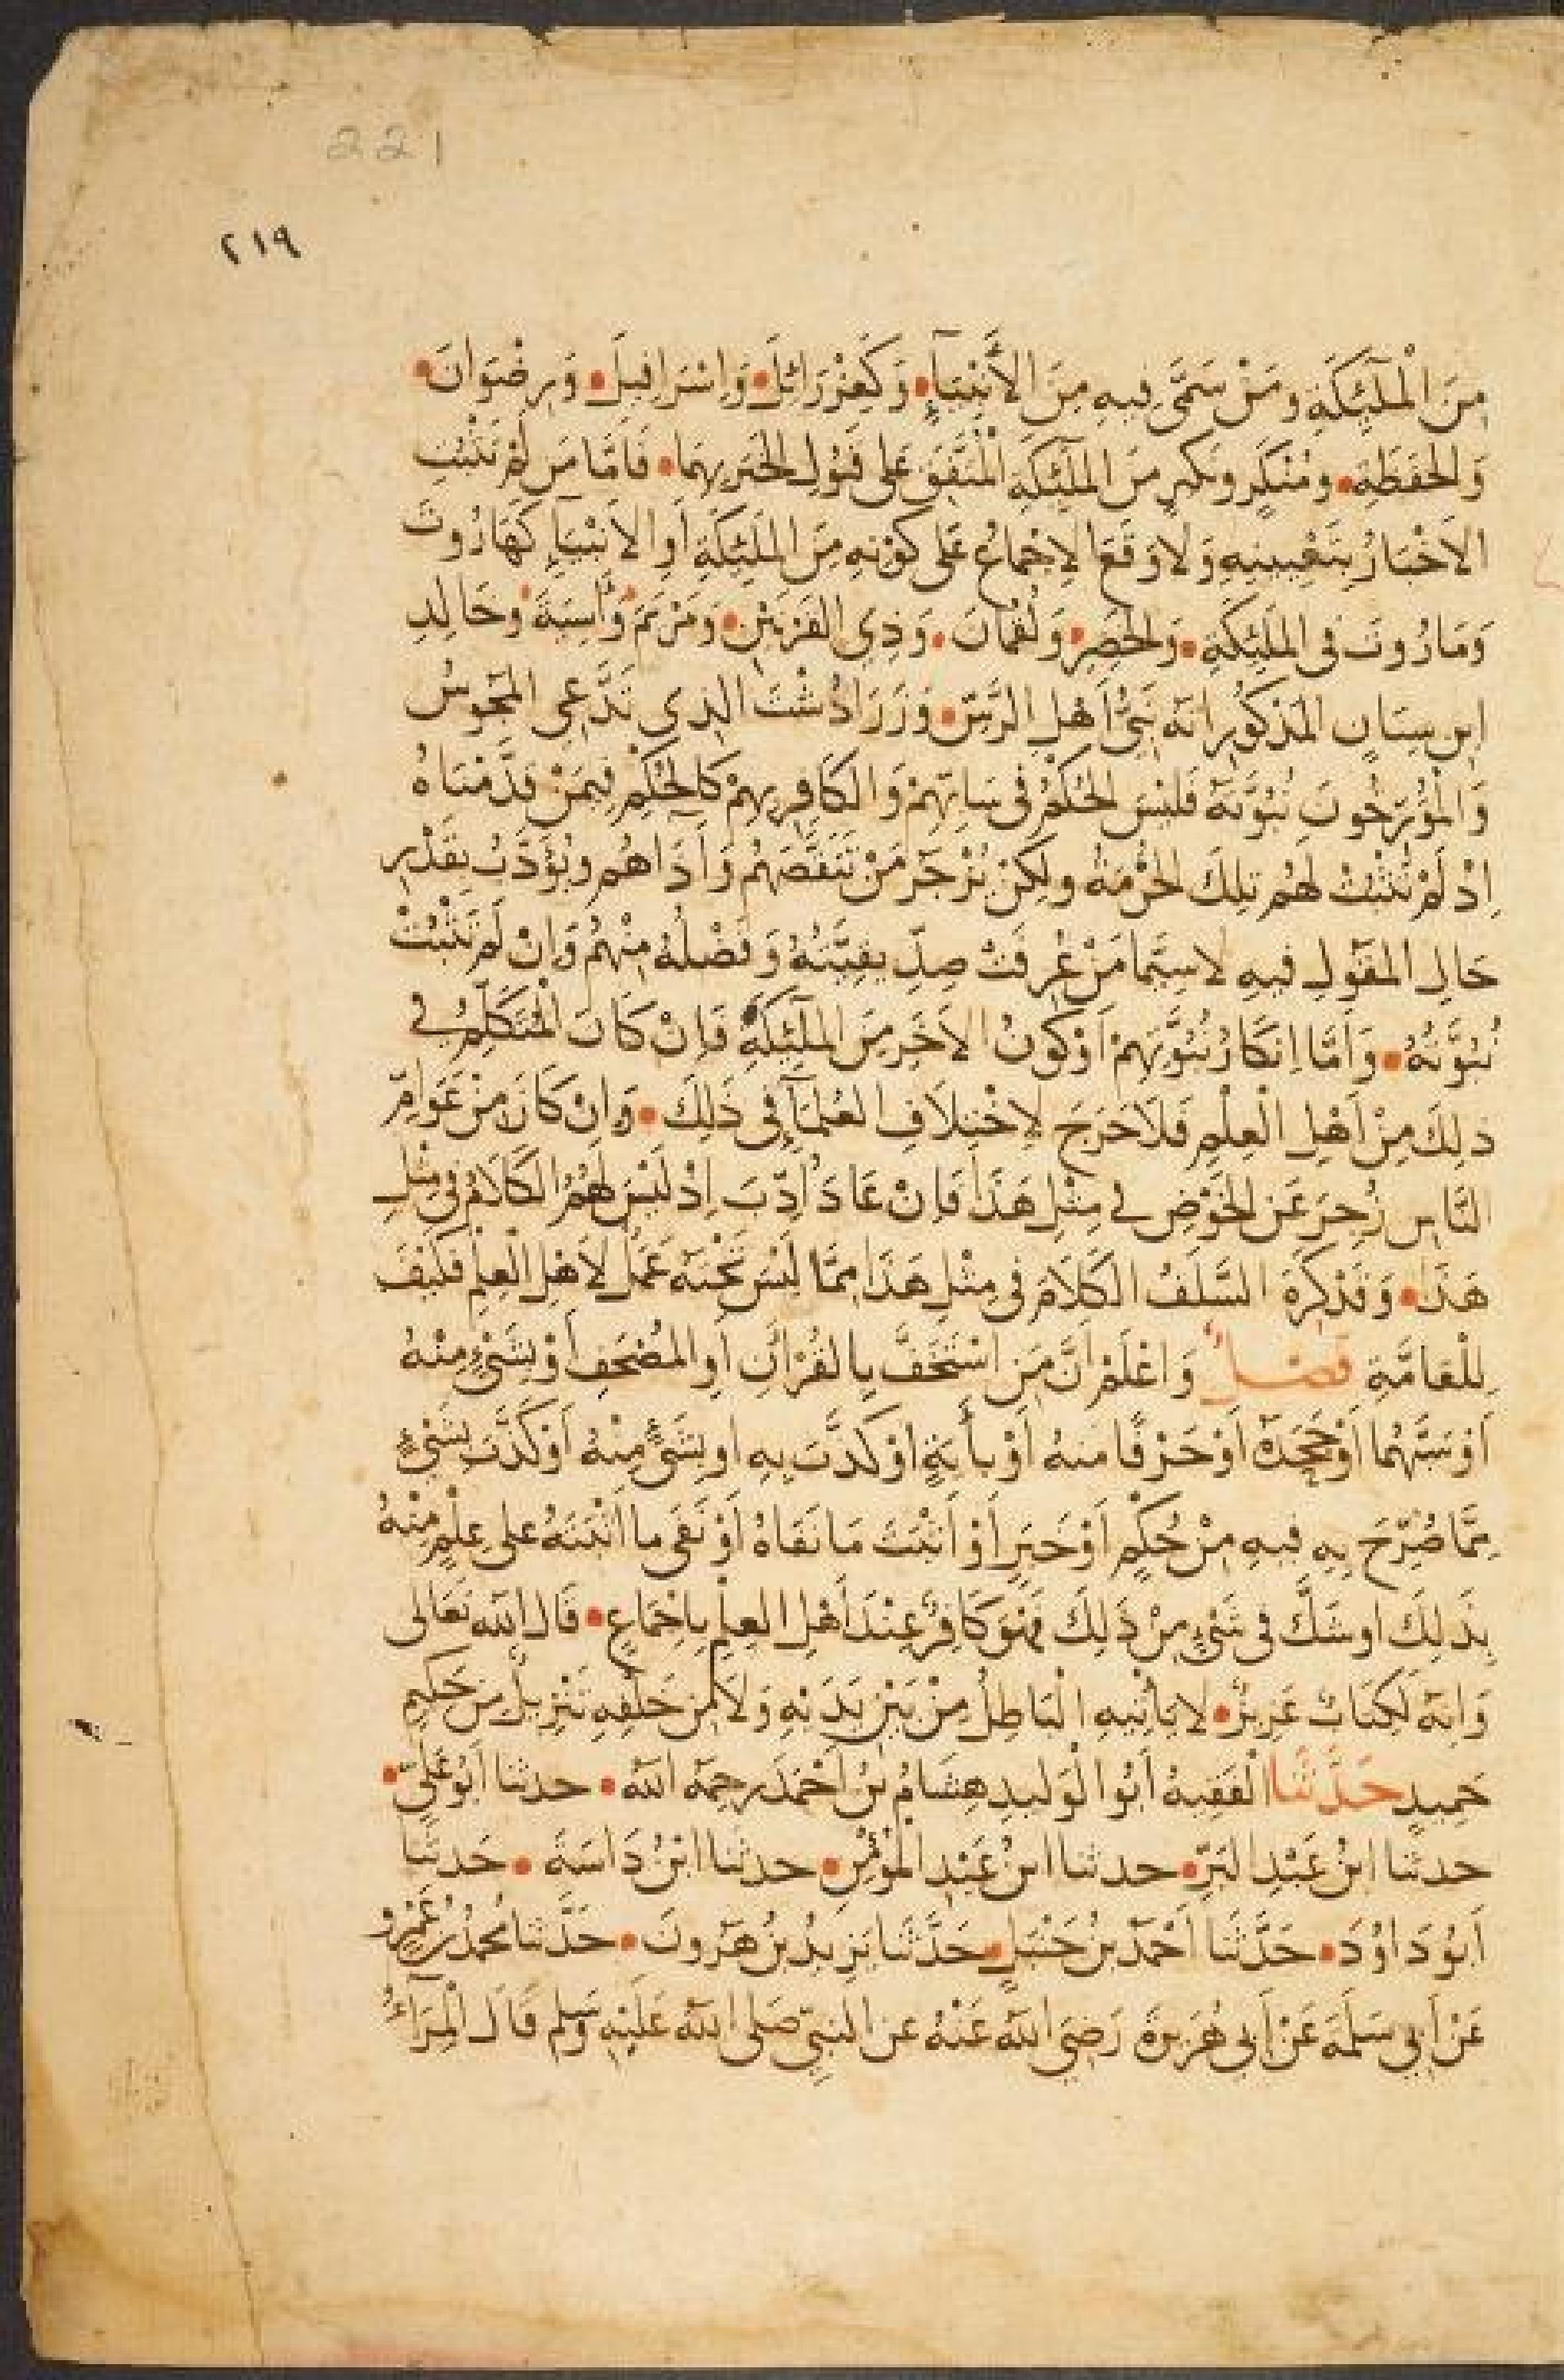 221
٢١٩
مِنَ الْمَلٰٓئِكَةِ وَمَنْ سَمَّى فِيهِ مِنَ الأَنْبِيَآءِ • وَكَعِزْرَائِلَ • وَاِسْرَافِيلَ • وَرِضْوَانَ •
وَالحَفَظَةِ • ومُنْكَرٍ ونكيرٍ مِنَ المَلٰٓئِكَةِ الْمُتَّفَقِ عَلى قَبُولِ الخَبَرِ بِهِمَا • فَاَمَّا مَن لَمْ تَثْبُتِ
الاَخْبَارُ بِتَعْيِينِهِ وَلاَ وَقَعَ الاِجْمَاعُ عَلَى كَوْنِهِ مِنَ المَلٰئِكَةِ أَوِ الاَنْبِيَآءِ كَهَارُوتَ
وَمَارُوتَ فى المَلٰئِكَةِ • وَالخَضِرِ • وَلُقْمَانَ • وَذِى القَرْنَيْنِ • وَمَرْيَمَ وَاٰسِيَةَ وَخَالِدِ
ابنِ سِنَانٍ المَذكُورِ انّهُ نَبِيُّ أَهْلِ الرَّسِّ • وَزَرَادُشْتَ الذِى تَدَّعِى المَجُوسُ
وَالْمُؤَرِّخُونَ نُبُوَّتَهُ فَليْسَ الحُكْمُ فى سَابِّهِمْ وَالكَافِرِ بِهِمْ كَالحُكْمِ فِيمَنْ قَدَّمْنَاهُ
اِذْ لَمْ تَثْبُتْ لَهُمْ تِلكَ الحُرْمَةُ ولكِنْ يُزْجَرُ مَنْ تَنَقَّصَهُمْ وَآذَاهُم ويُؤَدَّبُ بِقَدْرِ
حَالِ المَقُولِ فيهِ لاَ سِيَّمَا مَنْ عُرِفَتْ صِدِّيقِيَّتُهُ وَفَضْلُهُ مِنْهُمْ وَاِنْ لَمْ تَثْبُتْ
نُبُوَّتُهُ • وَاَمَّا اِنكَارُ نُبُوَّتِهِمْ اَوْ كَوْنُ الاَخَرِ مِنَ المَلٰٓئِكَةِ فَاِنْ كَانَ الْمُتَكَلِّمُ في
ذٰلِكَ مِنْ اَهْلِ الْعِلْمِ فَلاَ حَرَجَ لاِخْتِلاَفِ العُلمَآءِ فى ذَلِكَ • وَاِنْ كَانَ مِنْ عَوَامِّ
النَّاسِ زُجِرَ عَنِ الخَوْضِ في مِثْلِ هَذَا فَاِنْ عَادَ أُدِّبَ اِذْ لَيْسَ لَهُمُ الكَلاَمُ فى مِثْلِ
هَذَا • وَقَدْ كَرِهَ السَّلَفُ الكَلاَمَ فى مِثْلِ هَذَا مِمَّا لَيْسَ تَحْتَهُ عَمَلٌ لاَهلِ العِلْمِ فَكَيْفَ
لِلْعَامَّةِ فصْلٌ وَاعْلَمْ اَنَّ مَنِ اسْتَخَفَّ بِالقُرْاٰنِ اَوِ المُصْحَفِ أَوْ بِشَىْءٍ مِنْهُ
اَوْ سَبَّهُمَا اَوْ جَحَدَهُ اَوْ حَرْفًا منهُ أَوْ بأَيَةٍ اوْ كَذَّبَ بِهِ او بِشَىْءٍ مِنْهُ اَوْ كَذَّبَ بِشَىْءٍ
مِمَّا صُرِّحَ بِهِ فيهِ مِنْ حُكْمٍ اَوْ خَبَرٍ أَوْ اَثْبَتَ مَا نَفَاهُ اَوْ نَفَى ما اَثْبَتَهُ على عِلْمٍ مِنْهُ
بِذَلِكَ او شَكَّ فى شَىْءٍ مِنْ ذَلِكَ فَهْوَ كَافِرٌ عِنْدَ أَهْلِ العِلْمِ بِاِجْمَاعٍ • قَالَ اللّٰهُ تَعَالى
وَاِنَّهُ لَكِتَابٌ عَزِيزٌ • لا يَأْتِيهِ الْبَاطِلُ مِنْ بَيْنِ يَدَيْهِ وَلاَ مِنْ خَلْفِهِ تَنْزِيلٌ مِنْ حَكِيمٍ
حَمِيدٍ حَدَّثَنَا الْفَقِيهُ أَبُو الْوَلِيدِ هِشَامُ بْنُ أَحْمَدَ رحِمَهُ اللّٰهُ • حدثنا أَبُو عَلِيٍّ •
حدثنا ابنُ عَبْدِ البَرِّ • حدثنا ابنُ عَبْدِ الْمُؤْمِنِ • حدثنا ابْنُ دَاسَةَ • حَدثنا
اَبُو دَاوُدَ • حَدَّثَنَا اَحْمَدُ بنُ حَنْبَلٍ • حَدَّثَنَا يَزِيدُ بنُ هٰرُونَ • حَدَّثنا مُحمدُ بنُ عَمْرٍو
عَنْ أَبِي سَلَمَةَ عَنْ اَبِى هُرَيْرَةَ رَضِىَ اللّٰهُ عَنْهُ عن النبيِّ صَلى اللّٰهُ عَلَيْهِ وَسَلم قَالَ الْمِرَآءُ